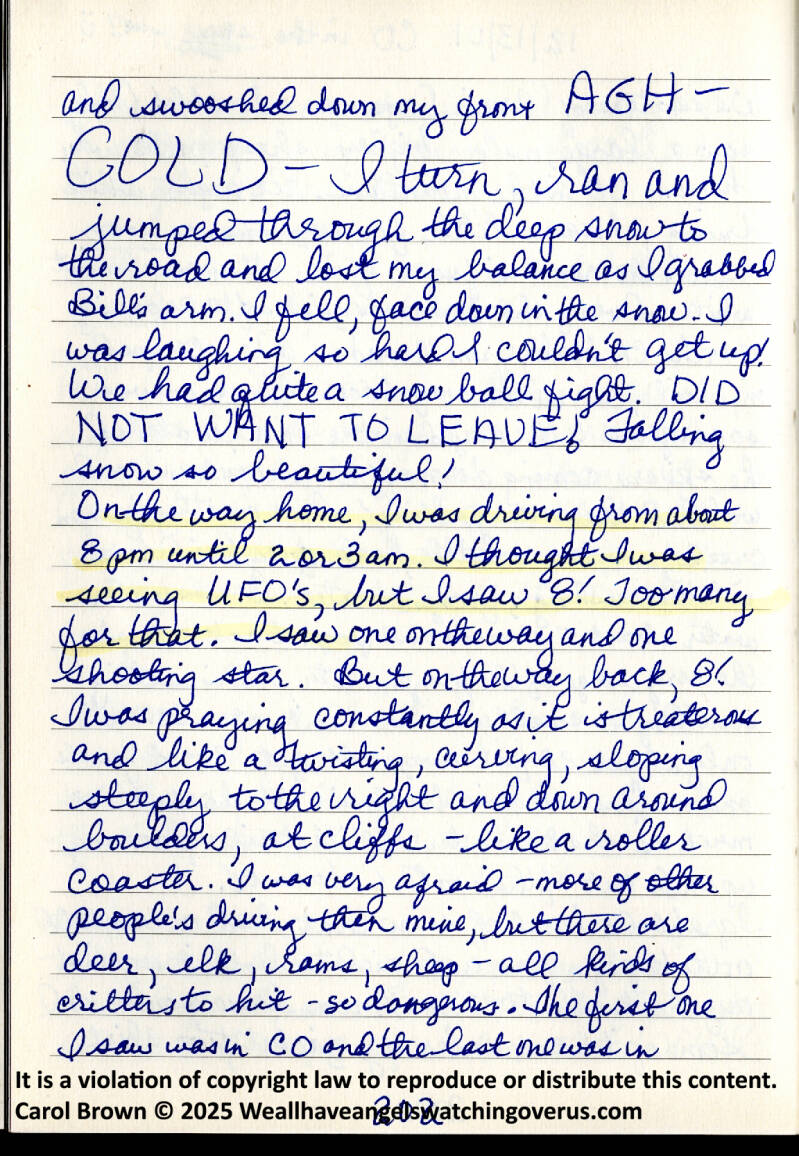 and swooshed down my front AGH –
COLD – I turn, ran and
jumped through the deep snow to
the road and lost my balance as I grabbed
Bill's arm. I fell, face down in the snow. I
was laughing so hard I couldn't get up!
We had quite a snow ball fight. DID
NOT WANT TO LEAVE! Falling
snow so beautiful!
On the way home, I was driving from about
8 pm until 2 or 3 am. I thought I was
seeing UFO's, but I saw 8! Too many
for that. I saw one on the way and one
shooting star. But on the way back, 8!
I was praying constantly as it is treaterous
and like a twisting, curving, sloping
steeply to the right and down around
boulders, at cliffs – like a roller
coaster. I was very afraid – more of other
people's driving then mine, but there are
deer, elk, rams, sheep – all kinds of
critters to hit – so dangerous. The first one
I saw was in CO and the last one was in
It is a violation of copyright law to reproduce or distribute this content.
Carol Brown © 2025 Weallhaveangelswatchingoverus.com
202